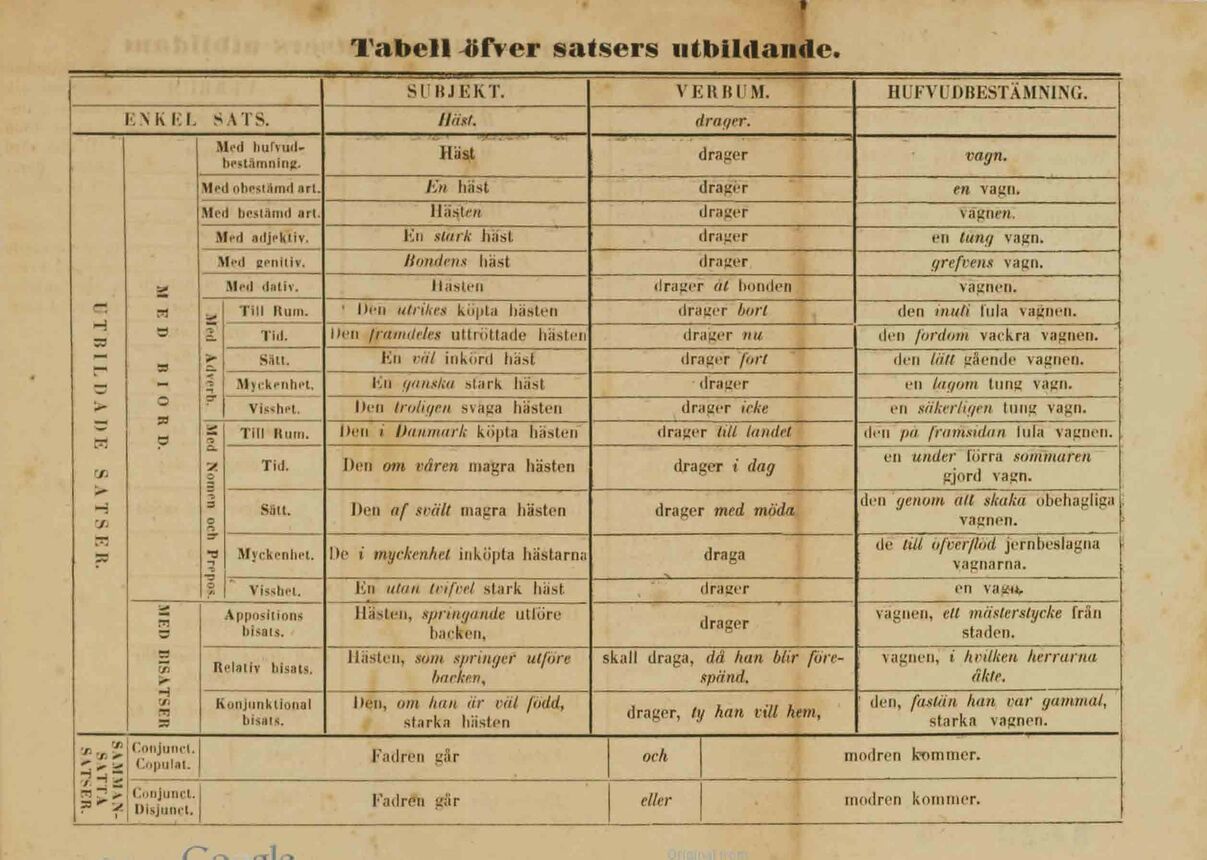 Tabell öfver satsers utbildande.
SUBJEKT. VERBUM. HUFVUDBESTÄMNING.
ENKEL SATS. Häst. drager.
UTBILDADE SATSER.
MED BIORD.
Med hufvud-
bestämning. Häst drager vagn.
Med obestämd art. En häst drager en vagn.
Med bestämd art. Hästen drager vagnen.
Med adjektiv. En stark häst drager en tung vagn.
Med genitiv. Bondens häst drager grefvens vagn.
Med dativ. Hästen drager åt bonden vagnen.
Med Adverb.
Till Rum. Den utrikes köpta hästen drager bort den inuti fula vagnen.
Tid. Den framdeles uttröttade hästen drager nu den fordom vackra vagnen.
Sätt. En väl inkörd häst drager fort den lätt gående vagnen.
Myckenhet. En ganska stark häst drager en lagom tung vagn.
Visshet. Den troligen svaga hästen drager icke en säkerligen tung vagn.
Med Nomen och Prepos.
Till Rum. Den i Danmark köpta hästen drager till landet den på framsidan fula vagnen.
Tid. Den om våren magra hästen drager i dag en under förra sommaren
gjord vagn.
Sätt. Den af svält magra hästen drager med möda den genom att skaka obehagliga
vagnen.
Myckenhet. De i myckenhet inköpta hästarna draga de till öfverflöd jernbeslagna
vagnarna.
Visshet. En utan tvifvel stark häst drager en vagn.
MED BISATSER
Appositions
bisats. Hästen, springande utföre
backen, drager vagnen, ett mästerstycke från
staden.
Relativ bisats. Hästen, som springer utföre
backen, skall draga, då han blir före-
spänd, vagnen, i hvilken herrarna
åkte.
Konjunktional
bisats. Den, om han är väl född,
starka hästen drager, ty han vill hem, den, fastän han var gammal,
starka vagnen.
SAMMAN-
SATTA
SATSER.
Conjunct.
Copulat. Fadren går och modren kommer.
Conjunct.
Disjunct. Fadren går eller modren kommer.
Google
Original from